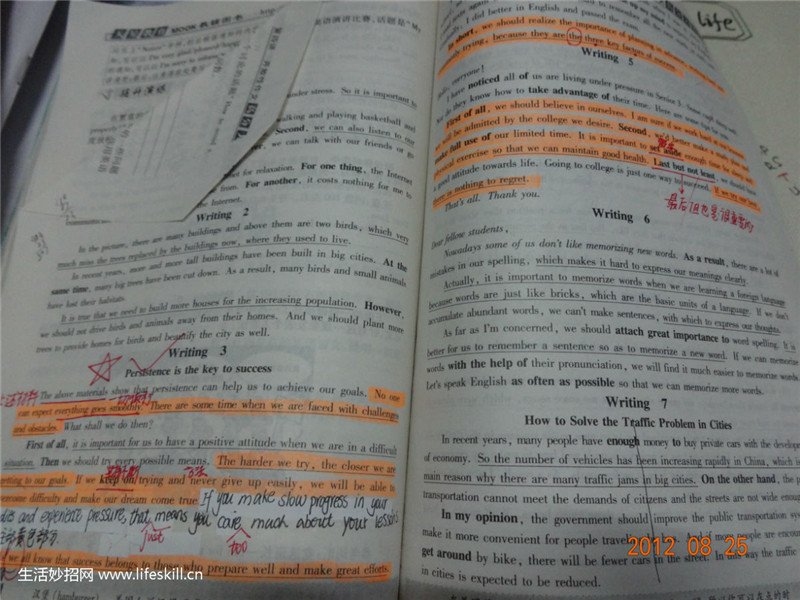 MOOK教辅图书
under stress. So it is important to
talking and playing basketball and
Second, we can also listen to our
we can talk with our friends or go
for relaxation. For one thing, the Internet
from. For another, it costs nothing for me to
the Internet.
Writing 2
In the picture, there are many buildings and above them are two birds, which very
much miss the trees replaced by the buildings now, where they used to live.
In recent years, more and more tall buildings have been built in big cities. At the
same time, many big trees have been cut down. As a result, many birds and small animals
have lost their habitats.
It is true that we need to build more houses for the increasing population. However,
we should not drive birds and animals away from their homes. And we should plant more
trees to provide homes for birds and beautify the city as well.
Writing 3
Persistence is the key to success
The above materials show that persistence can help us to achieve our goals. No one
can expect everything goes smoothly. There are some time when we are faced with challenges
and obstacles. What shall we do then?
First of all, it is important for us to have a positive attitude when we are in a difficult
situation. Then we should try every possible means. The harder we try, the closer we are
getting to our goals. If we keep on trying and never give up easily, we will be able to
overcome difficulty and make our dream come true. If you make slow progress in your
and experience pressure, that means you care much about your lessons
just too
we all know that success belongs to those who prepare well and make great efforts.
生活妙招网 www.lifeskill.cn
life
I did better in English and passed the exam.
In short, we should realize the importance of planning
trying, because they are the three key factors of success.
Writing 5
everyone!
I have noticed all of us are living under pressure in Senior 3.
do they know how to take advantage of their time. Here are some tips for you.
First of all, we should believe in ourselves. I am sure if we work hard
will be admitted by the college we desire. Second, we'd better make a study plan and
make full use of our limited time. It is important to set aside enough time for
physical exercise so that we can maintain good health. Last but not least, we should have
a good attitude towards life. Going to college is just one way to succeed. If we try our best,
there is nothing to regret.
That's all. Thank you.
最后但也是很重要的
Writing 6
Dear fellow students,
Nowadays some of us don't like memorizing new words. As a result, there are a lot of
mistakes in our spelling, which makes it hard to express our meanings clearly.
Actually, it is important to memorize words when we are learning a foreign language
because words are just like bricks, which are the basic units of a language. If we don't
accumulate abundant words, we can't make sentences, with which to express our thoughts.
As far as I'm concerned, we should attach great importance to word spelling. It is
better for us to remember a sentence so as to memorize a new word. If we can memorize
words with the help of their pronunciation, we will find it much easier to memorize words.
Let's speak English as often as possible so that we can memorize more words.
Writing 7
How to Solve the Traffic Problem in Cities
In recent years, many people have enough money to buy private cars with the development
of economy. So the number of vehicles has been increasing rapidly in China, which is
main reason why there are many traffic jams in big cities. On the other hand, the p
transportation cannot meet the demands of citizens and the streets are not wide enough
In my opinion, the government should improve the public transportation sys
make it more convenient for people travel And if more people are encour
get around by bike, there will be fewer cars in the street. In this way the traffic
in cities is expected to be reduced.
2012 08 25